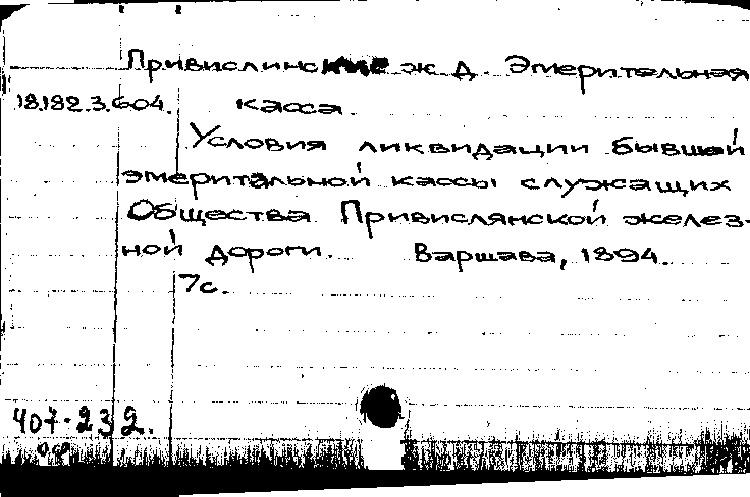 Привислинские ж. д. Эмеритальная
18.182.3.604. касса.
Условия ликвидации бывшей
эмеритальной кассы служащих
Общества Привислянской желез-
ной дороги. Варшава, 1894.
7с.
407-232.